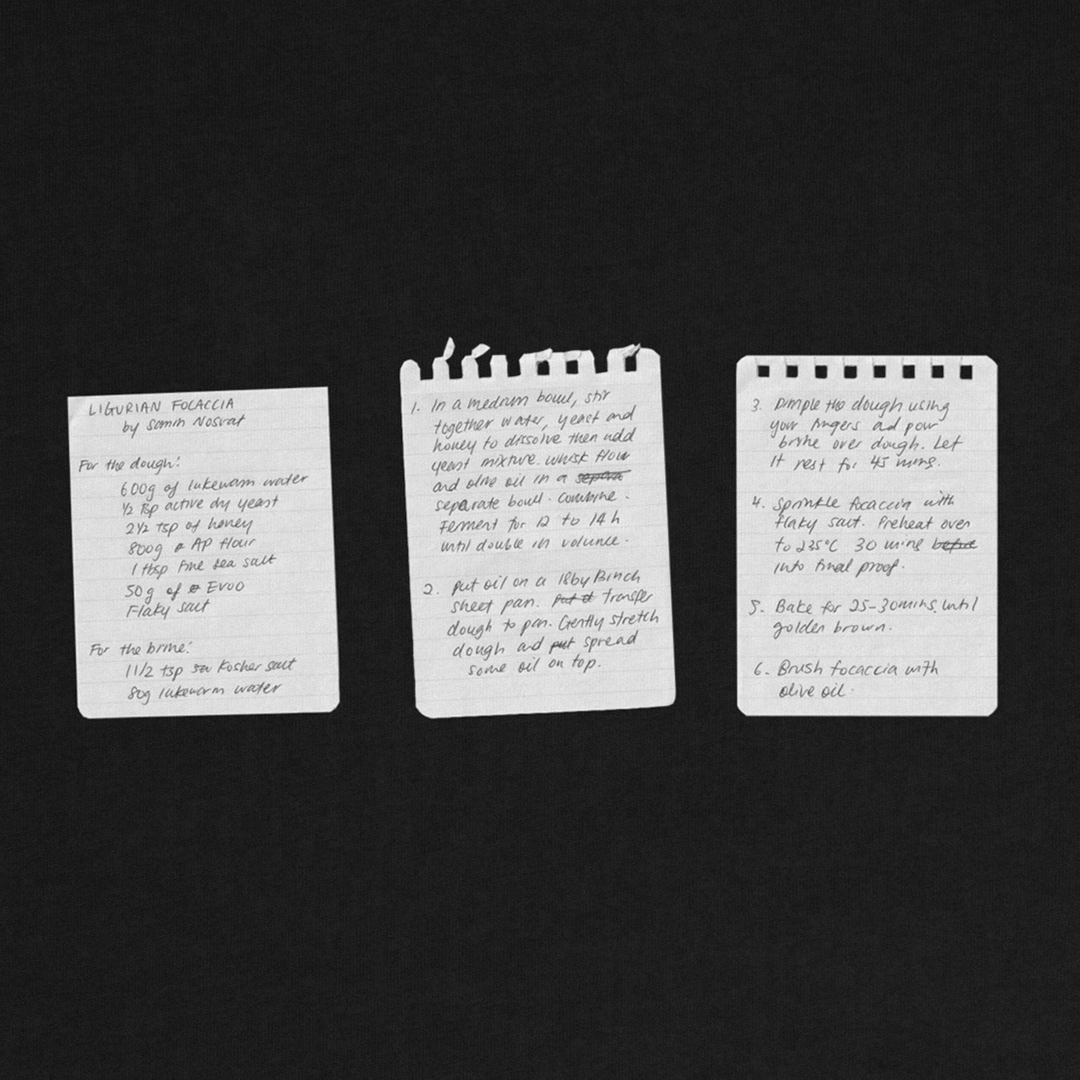 LIGURIAN FOCACCIA
by Samin Nosrat
For the dough:
600g of lukewarm water
1/2 tsp active dry yeast
2 1/2 tsp of honey
800g AP flour
1 tbsp fine sea salt
50g of EVOO
Flaky salt
For the brine:
1 1/2 tsp Kosher salt
80g lukewarm water
1. In a medium bowl, stir
together water, yeast and
honey to dissolve then add
yeast mixture. Whisk flour
and olive oil in a
separate bowl. Combine.
Ferment for 12 to 14h
until double in volume.
2. Put oil on a 18 by 13 inch
sheet pan. Put it transfer
dough to pan. Gently stretch
dough and put spread
some oil on top.
3. Dimple the dough using
your fingers and pour
brine over dough. Let
it rest for 45 mins.
4. Sprinkle focaccia with
flaky salt. Preheat oven
to 235°C 30 mins before
into final proof.
5. Bake for 25-30mins. until
golden brown.
6. Brush focaccia with
olive oil.